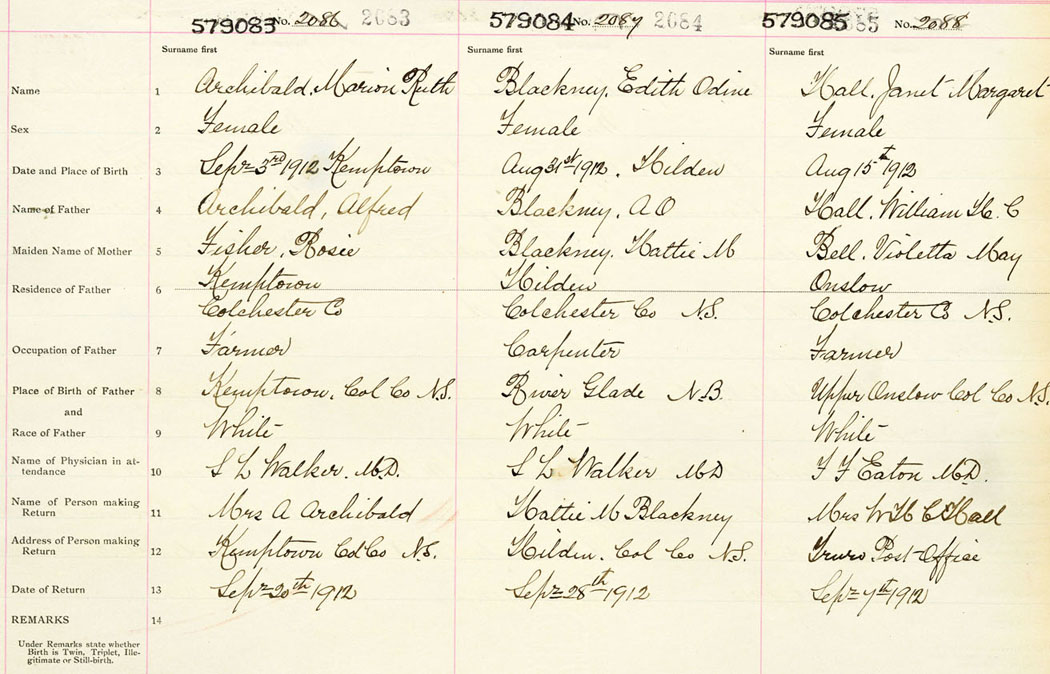 579083 No. 2086 2083 579084 No. 2087 2084 579085 No. 2088
Surname first Surname first Surname first
Name 1 Archibald, Marion Ruth Blackney, Edith Odine Hall, Janet Margaret
Sex 2 Female Female Female
Date and Place of Birth 3 Sept 3rd 1912 Kemptown Aug 31st 1912, Hilden Aug 15th 1912
Name of Father 4 Archibald, Alfred Blackney, A O Hall, William H. C
Maiden Name of Mother 5 Fisher, Rosie Blackney, Hattie M Bell, Violetta May
Residence of Father 6 Kemptown Hilden Onslow
Colchester Co Colchester Co N.S. Colchester Co N.S.
Occupation of Father 7 Farmer Carpenter Farmer
Place of Birth of Father 8 Kemptown, Col Co N.S. River Glade N.B Upper Onslow Col Co N.S.
and
Race of Father 9 White White White
Name of Physician in at-
tendance 10 S L Walker, M.D. S L Walker MD F F Eaton M.D.
Name of Person making
Return 11 Mrs A Archibald Hattie M Blackney Mrs W H C Hall
Address of Person making
Return 12 Kemptown Col Co N.S. Hilden, Col Co N.S. Truro Post Office
Date of Return 13 Sept 20th 1912 Sept 28th 1912 Sept 7th 1912
REMARKS 14
Under Remarks state whether
Birth is Twin, Triplet, Ille-
gitimate or Still-birth.